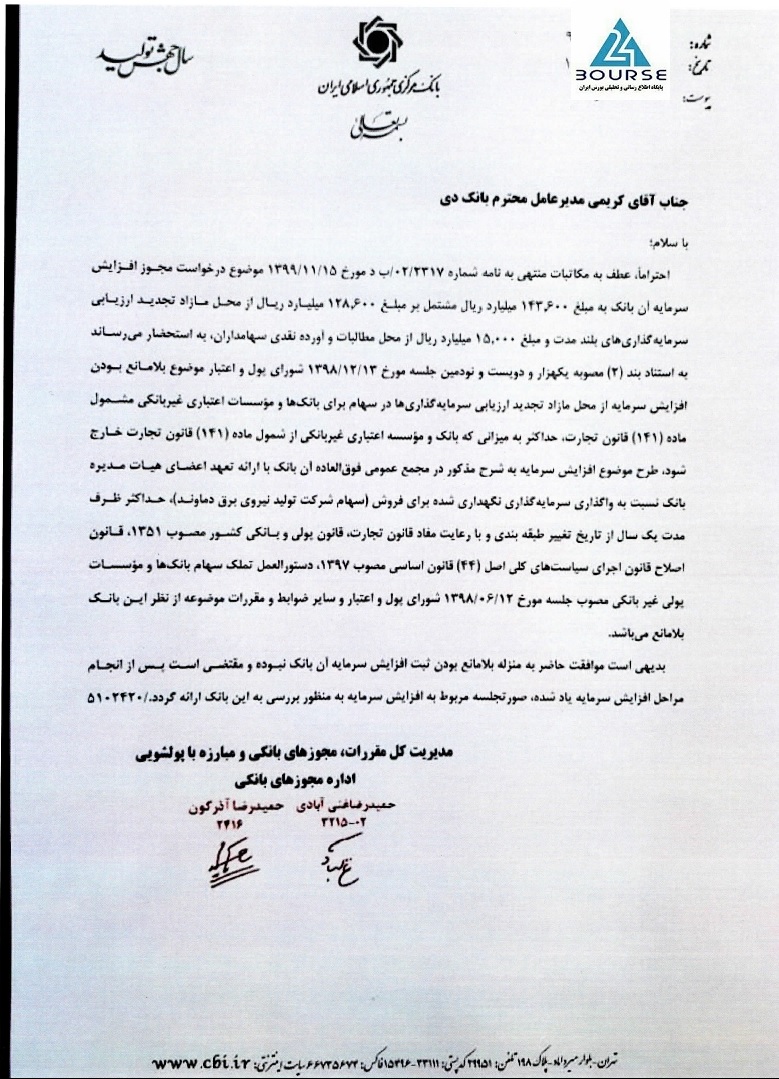 سال جهش تولید
بانک مرکزی جمهوری اسلامی ایران
بسمه تعالی
شماره:
تاریخ:
پیوست:
24
BOURSE
پایگاه اطلاع رسانی و تحلیلی بورس ایران
جناب آقای کریمی مدیرعامل محترم بانک دی
با سلام؛
احتراماً، عطف به مکاتبات منتهی به نامه شماره ۰۲/۲۳۱۷/ب د مورخ ۱۳۹۹/۱۱/۱۵ موضوع درخواست مجوز افزایش
سرمایه آن بانک به مبلغ ۱۴۳,۶۰۰ میلیارد ریال مشتمل بر مبلغ ۱۲۸,۶۰۰ میلیارد ریال از محل مازاد تجدید ارزیابی
سرمایه گذاری‌های بلند مدت و مبلغ ۱۵,۰۰۰ میلیارد ریال از محل مطالبات و آورده نقدی سهامداران، به استحضار می‌رساند
به استناد بند (۲) مصوبه یکهزار و دویست و نودمین جلسه مورخ ۱۳۹۸/۱۲/۱۳ شورای پول و اعتبار موضوع بلامانع بودن
افزایش سرمایه از محل مازاد تجدید ارزیابی سرمایه‌گذاری‌ها در سهام برای بانک‌ها و مؤسسات اعتباری غیربانکی مشمول
ماده (۱۴۱) قانون تجارت، حداکثر به میزانی که بانک و مؤسسه اعتباری غیربانکی از شمول ماده (۱۴۱) قانون تجارت خارج
شود، طرح موضوع افزایش سرمایه به شرح مذکور در مجمع عمومی فوق‌العاده آن بانک با ارائه تعهد اعضای هیات مدیره
بانک نسبت به واگذاری سرمایه‌گذاری نگهداری شده برای فروش (سهام شرکت تولید نیروی برق دماوند)، حداکثر ظرف
مدت یک سال از تاریخ تغییر طبقه بندی و با رعایت مفاد قانون تجارت، قانون پولی و بانکی کشور مصوب ۱۳۵۱، قانون
اصلاح قانون اجرای سیاست‌های کلی اصل (۴۴) قانون اساسی مصوب ۱۳۹۷، دستورالعمل تملک سهام بانک‌ها و مؤسسات
پولی غیر بانکی مصوب جلسه مورخ ۱۳۹۸/۰۶/۱۲ شورای پول و اعتبار و سایر ضوابط و مقررات موضوعه از نظر این بانک
بلامانع می‌باشد.
بدیهی است موافقت حاضر به منزله بلامانع بودن ثبت افزایش سرمایه آن بانک نبوده و مقتضی است پس از انجام
مراحل افزایش سرمایه یاد شده، صورتجلسه مربوط به افزایش سرمایه به منظور بررسی به این بانک ارائه گردد./۵۱۰۲۴۲۰
مدیریت کل مقررات، مجوزهای بانکی و مبارزه با پولشویی
اداره مجوزهای بانکی
حمیدرضاغنی آبادی حمیدرضا آذرگون
۳۲۱۵-۰۲ ۲۴۱۶
تهران-بلوار میرداماد-پلاک ۱۹۸ تلفن: ۲۹۹۵۱ کدپستی: ۳۳۱۱۱-۱۵۴۹۶ فاکس: ۶۶۷۳۵۶۷۴ سایت اینترنتی: www.cbi.ir